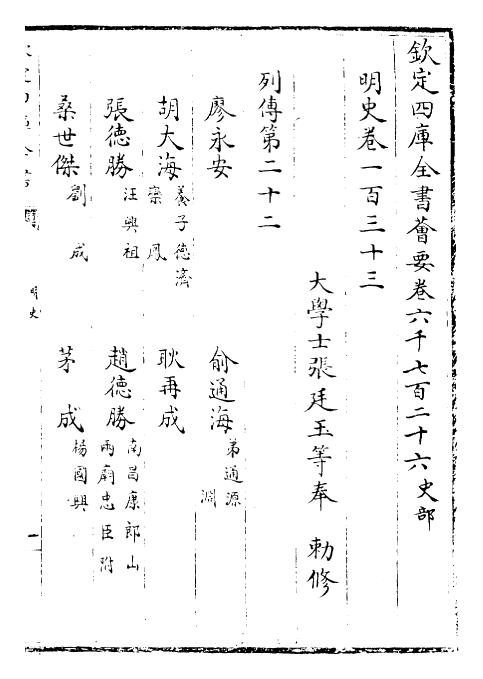 欽定四庫全書薈要卷六千七百二十六史部
明史卷一百三十三
大學士張廷玉等奉 勅修
列傳第二十二
廖永安 俞通海 弟通源 淵
胡大海 養子德濟 欒鳳 耿再成
張德勝 汪興祖 趙德勝 南昌康郎山 兩廟忠臣附
桑世傑 劉成 茅成 楊國興
明史